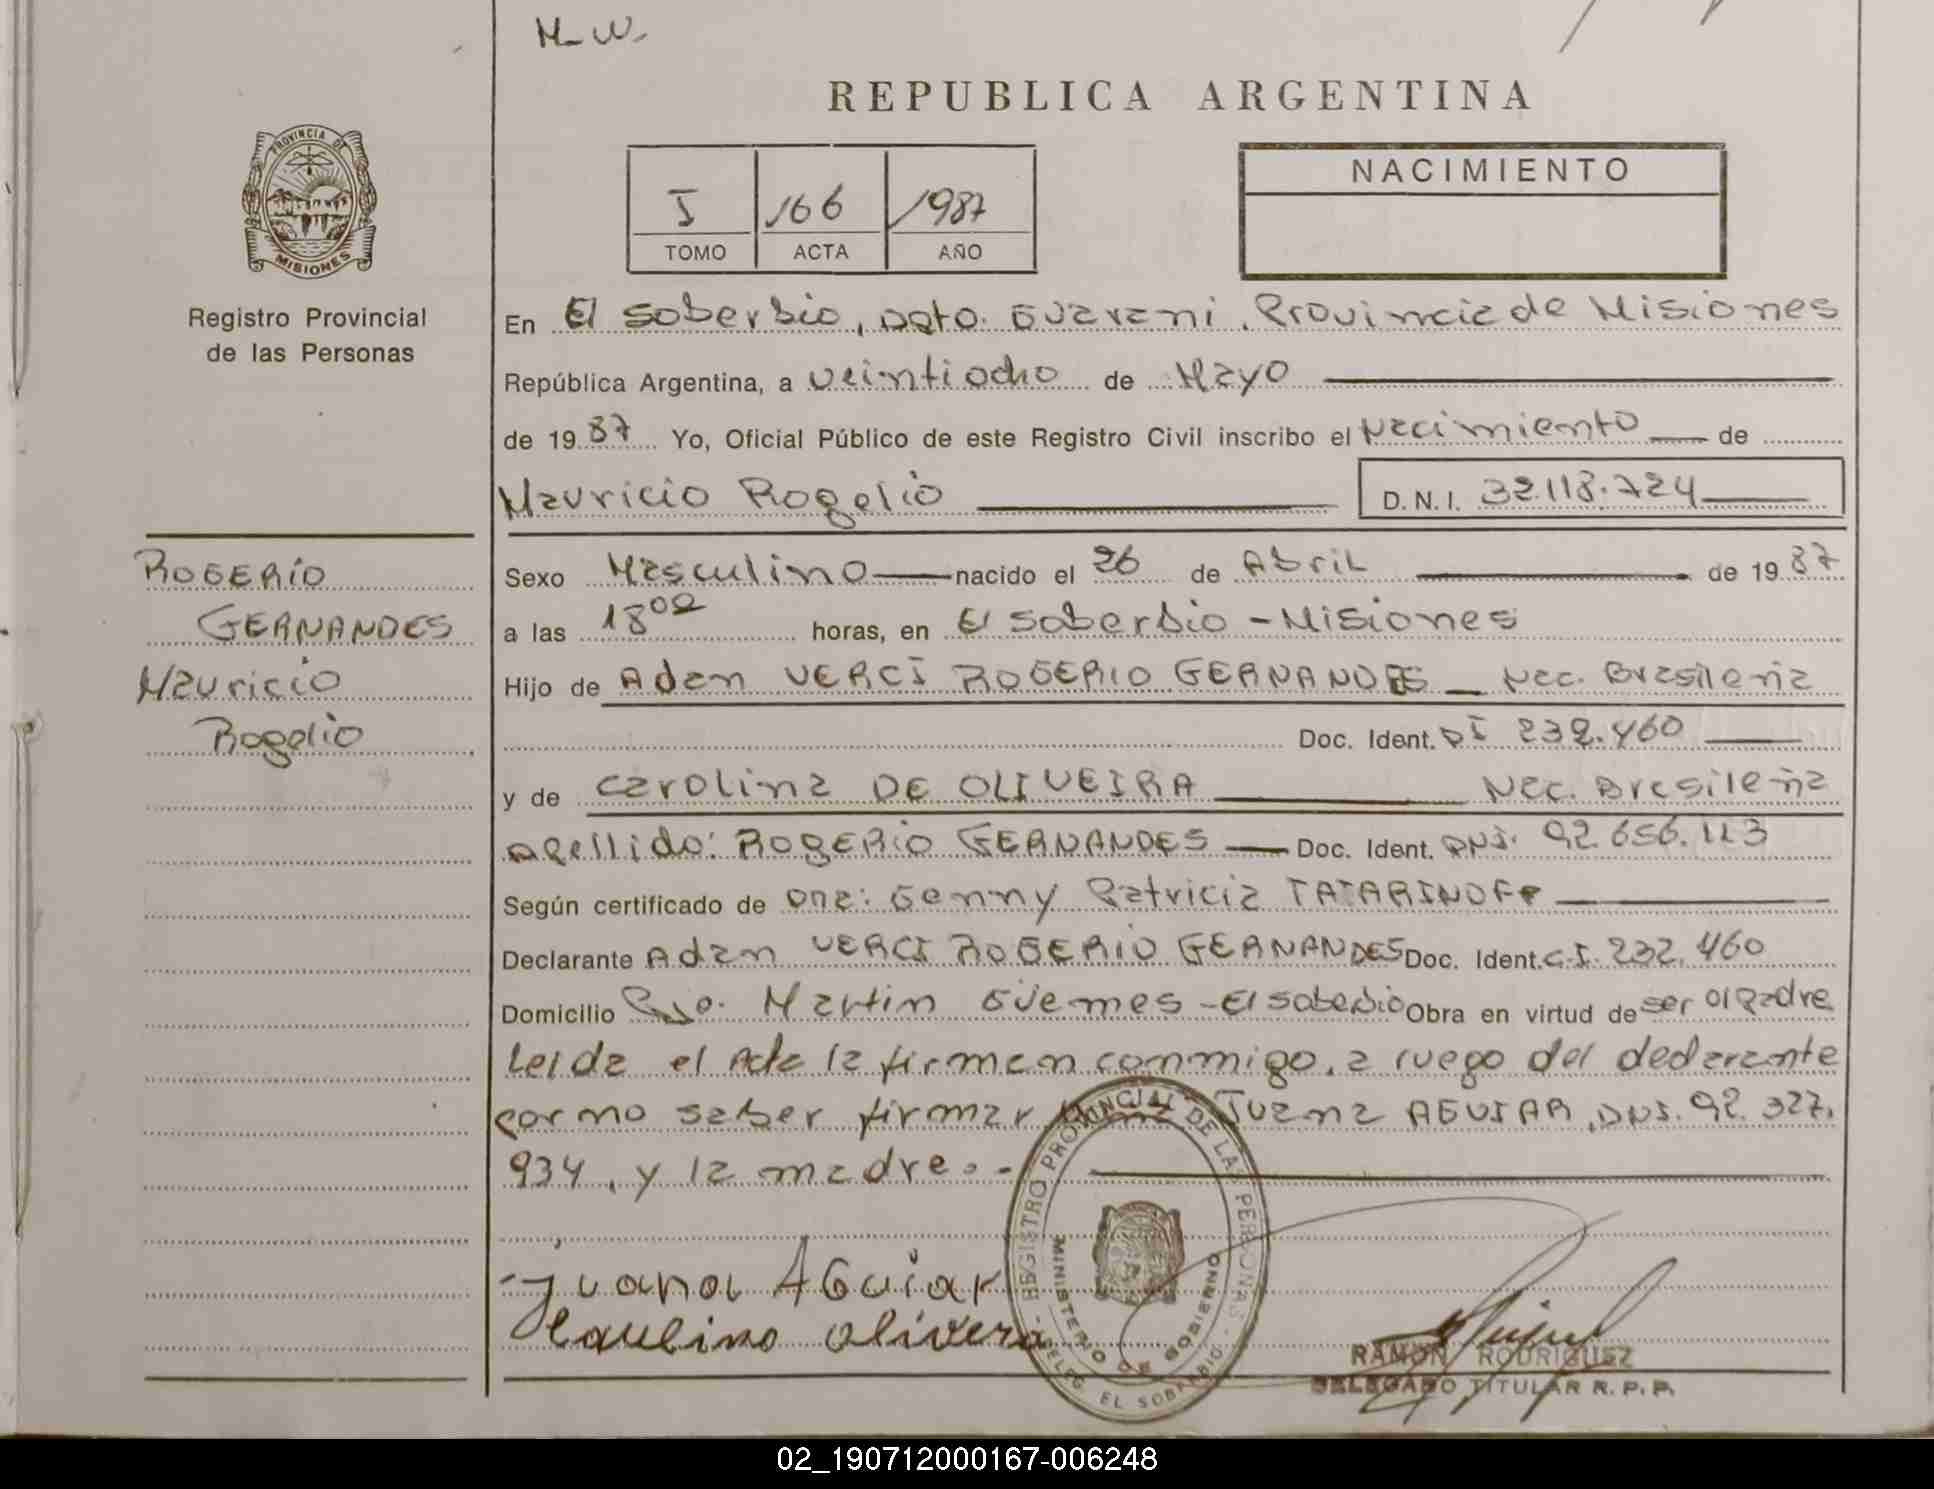 M-W.
REPUBLICA ARGENTINA
PROVINCIA DE
MISIONES
Registro Provincial
de las Personas
I 166 1987
TOMO ACTA AÑO
NACIMIENTO
En El Soberbio, Dpto. Guarani, Provincia de Misiones
República Argentina, a veintiocho de Mayo
de 1987 Yo, Oficial Público de este Registro Civil inscribo el Nacimiento de
Mauricio Rogelio D.N.I. 32.118.724
ROGERIO
GERNANDES
Mauricio
Rogelio
Sexo Masculino nacido el 26 de Abril de 1987
a las 18 00 horas, en El Soberbio - Misiones
Hijo de Adan VERCI ROGERIO GERNANDES Nac. Brasileña
Doc. Ident. DI 232.460
y de Carolina DE OLIVEIRA Nac. Brasileña
apellido: ROGERIO GERNANDES Doc. Ident. DNI. 92.656.113
Según certificado de Dna: Genny Patricia TATARINOFF
Declarante Adan VERCI ROGERIO GERNANDES Doc. Ident. C.I. 232.460
Domicilio Martin Güemes - El Soberbio Obra en virtud de ser el padre
Leida el Acta la firman conmigo, a ruego del declarante
por no saber firmar Juana AGUIAR, DNI. 92.327.
934, y la madre.-
Juana AGuiar
olivera
REGISTRO PROVINCIAL DE LAS PERSONAS
MINISTERIO DE GOBIERNO
DELEG. EL SOBERBIO
RAMON RODRIGUEZ
DELEGADO TITULAR R.P.P.
02_190712000167-006248